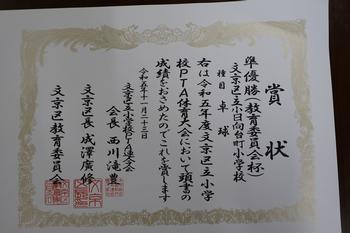 賞状
準優勝(教育委員会杯)
文京区立小日向台町小学校
種目 卓球
右は令和五年度文京区立小学
校PTA体育大会において頭書の
成績をおさめたのでこれを賞します
令和五年十一月二十三日
文京区立小学校PTA連合会
会長 西川滝豊
文京区長 成澤廣修
文京区教育委員会